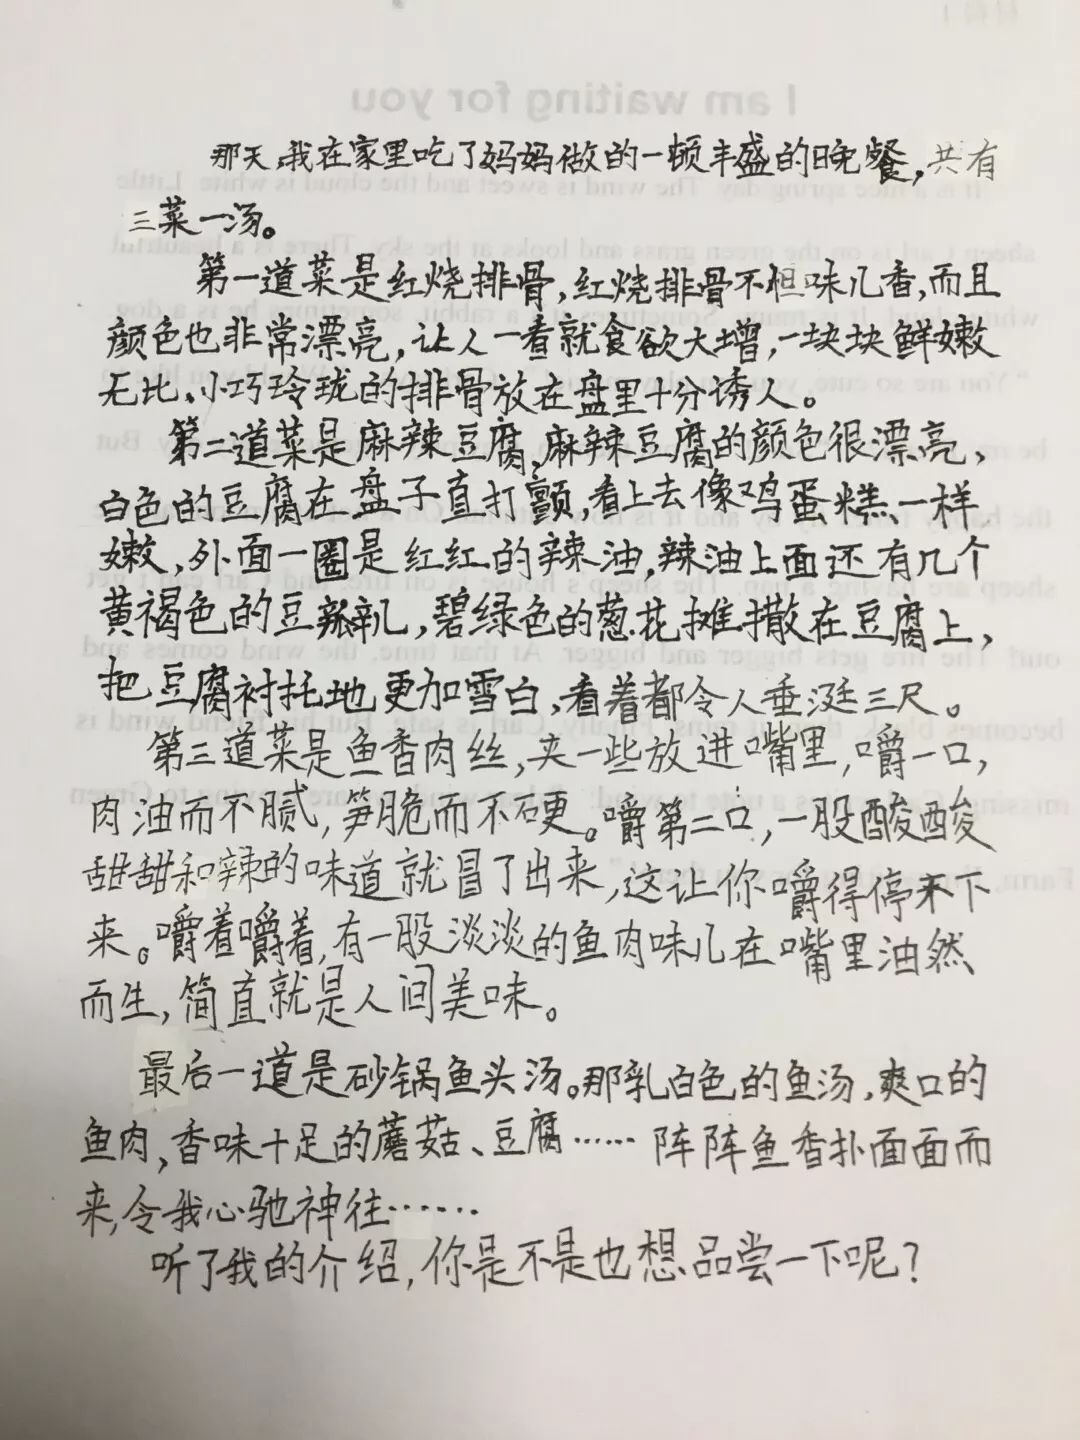 那天,我在家里吃了妈妈做的一顿丰盛的晚餐,共有
三菜一汤。
第一道菜是红烧排骨,红烧排骨不但味儿香,而且
颜色也非常漂亮,让人一看就食欲大增,一块块鲜嫩
无比、小巧玲珑的排骨放在盘里十分诱人。
第二道菜是麻辣豆腐,麻辣豆腐的颜色很漂亮,
白色的豆腐在盘子直打颤,看上去像鸡蛋糕一样
嫩,外面一圈是红红的辣油,辣油上面还有几个
黄褐色的豆瓣儿,碧绿色的葱花摊撒在豆腐上,
把豆腐衬托地更加雪白,看着都令人垂涎三尺。
第三道菜是鱼香肉丝,夹一些放进嘴里,嚼一口,
肉油而不腻,笋脆而不硬。嚼第二口,一股酸酸
甜甜和辣的味道就冒了出来,这让你嚼得停不下
来。嚼着嚼着,有一股淡淡的鱼肉味儿在嘴里油然
而生,简直就是人间美味。
最后一道是砂锅鱼头汤。那乳白色的鱼汤,爽口的
鱼肉,香味十足的蘑菇、豆腐……阵阵鱼香扑面面而
来,令我心驰神往……
听了我的介绍,你是不是也想品尝一下呢?
I am waiting for you